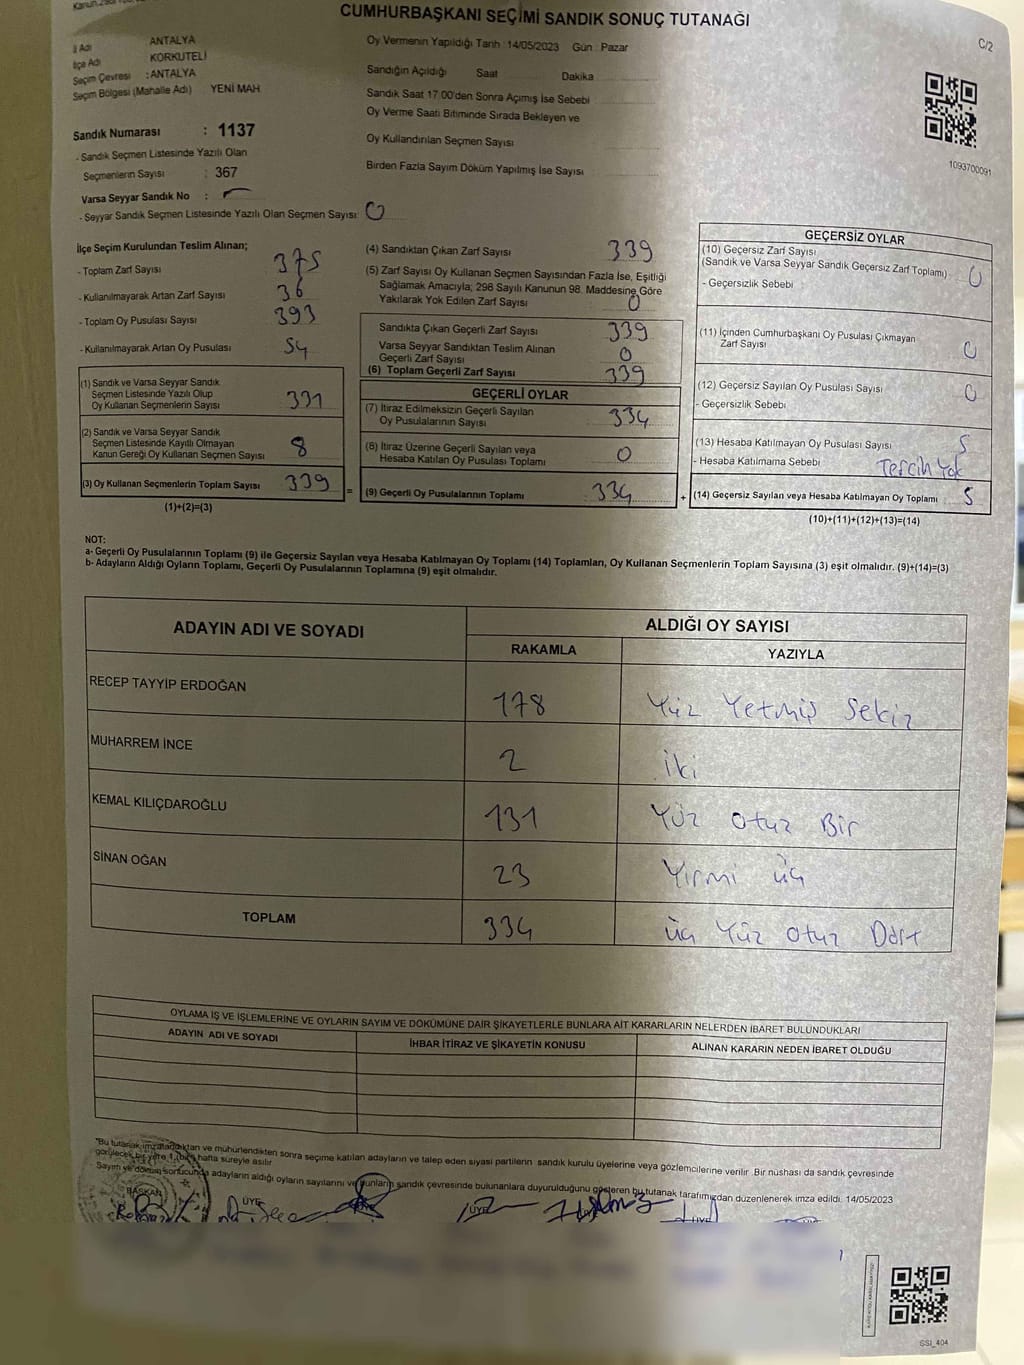 CUMHURBAŞKANI SEÇİMİ SANDIK SONUÇ TUTANAĞI
C/2
İl Adı ANTALYA
İlçe Adı KORKUTELİ
Seçim Çevresi : ANTALYA
Seçim Bölgesi (Mahalle Adı) YENİ MAH.
Sandık Numarası : 1137
- Sandık Seçmen Listesinde Yazılı Olan
Seçmenlerin Sayısı : 367
Varsa Seyyar Sandık No :
- Seyyar Sandık Seçmen Listesinde Yazılı Olan Seçmen Sayısı: 0
Oy Vermenin Yapıldığı Tarih : 14/05/2023 Gün : Pazar
Sandığın Açıldığı Saat Dakika
Sandık Saat 17:00'den Sonra Açımış İse Sebebi
Oy Verme Saati Bitiminde Sırada Bekleyen ve
Oy Kullandırılan Seçmen Sayısı
Birden Fazla Sayım Döküm Yapılmış İse Sayısı
1093700091
İlçe Seçim Kurulundan Teslim Alınan;
- Toplam Zarf Sayısı 375
- Kullanılmayarak Artan Zarf Sayısı 36
- Toplam Oy Pusulası Sayısı 393
- Kullanılmayarak Artan Oy Pusulası 54
(1) Sandık ve Varsa Seyyar Sandık
Seçmen Listesinde Yazılı Olup
Oy Kullanan Seçmenlerin Sayısı 331
(2) Sandık ve Varsa Seyyar Sandık
Seçmen Listesinde Kayıtlı Olmayan
Kanun Gereği Oy Kullanan Seçmen Sayısı 8
(3) Oy Kullanan Seçmenlerin Toplam Sayısı 339
(1)+(2)=(3)
(4) Sandıktan Çıkan Zarf Sayısı 339
(5) Zarf Sayısı Oy Kullanan Seçmen Sayısından Fazla İse, Eşitliği
Sağlamak Amacıyla; 298 Sayılı Kanunun 98. Maddesine Göre
Yakılarak Yok Edilen Zarf Sayısı 0
Sandıkta Çıkan Geçerli Zarf Sayısı 339
Varsa Seyyar Sandıktan Teslim Alınan
Geçerli Zarf Sayısı 0
(6) Toplam Geçerli Zarf Sayısı 339
GEÇERLİ OYLAR
(7) İtiraz Edilmeksizin Geçerli Sayılan
Oy Pusulalarının Sayısı 334
(8) İtiraz Üzerine Geçerli Sayılan veya
Hesaba Katılan Oy Pusulası Toplamı 0
= (9) Geçerli Oy Pusulalarının Toplamı 334
GEÇERSİZ OYLAR
(10) Geçersiz Zarf Sayısı
(Sandık ve Varsa Seyyar Sandık Geçersiz Zarf Toplamı) : 0
- Geçersizlik Sebebi
(11) İçinden Cumhurbaşkanı Oy Pusulası Çıkmayan
Zarf Sayısı 0
(12) Geçersiz Sayılan Oy Pusulası Sayısı 0
- Geçersizlik Sebebi
(13) Hesaba Katılmayan Oy Pusulası Sayısı 5
- Hesaba Katılmama Sebebi Tercih Yok
+ (14) Geçersiz Sayılan veya Hesaba Katılmayan Oy Toplamı 5
(10)+(11)+(12)+(13)=(14)
NOT:
a- Geçerli Oy Pusulalarının Toplamı (9) ile Geçersiz Sayılan veya Hesaba Katılmayan Oy Toplamı (14) Toplamları, Oy Kullanan Seçmenlerin Toplam Sayısına (3) eşit olmalıdır. (9)+(14)=(3)
b- Adayların Aldığı Oyların Toplamı, Geçerli Oy Pusulalarının Toplamına (9) eşit olmalıdır.
ADAYIN ADI VE SOYADI
ALDIĞI OY SAYISI
RAKAMLA YAZIYLA
RECEP TAYYİP ERDOĞAN 178 Yüz Yetmiş Sekiz
MUHARREM İNCE 2 iki
KEMAL KILIÇDAROĞLU 131 Yüz Otuz Bir
SİNAN OĞAN 23 Yirmi üç
TOPLAM 334 üç Yüz Otuz Dört
OYLAMA İŞ VE İŞLEMLERİNE VE OYLARIN SAYIM VE DÖKÜMÜNE DAİR ŞİKAYETLERLE BUNLARA AİT KARARLARIN NELERDEN İBARET BULUNDUKLARI
ADAYIN ADI VE SOYADI
İHBAR İTİRAZ VE ŞİKAYETİN KONUSU
ALINAN KARARIN NEDEN İBARET OLDUĞU
"Bu tutanak imzalandıktan ve mühürlendikten sonra seçime katılan adayların ve talep eden siyasi partilerin sandık kurulu üyelerine veya gözlemcilerine verilir. Bir nüshası da sandık çevresinde
görülecek bir yere 1 (bir) hafta süreyle asılır
Sayım ve döküm sonucunda adayların aldığı oyların sayılarını ve bunların sandık çevresinde bulunanlara duyurulduğunu gösteren bu tutanak tarafımızdan düzenlenerek imza edildi. 14/05/2023
BAŞKAN ÜYE ÜYE ÜYE
SSI_404